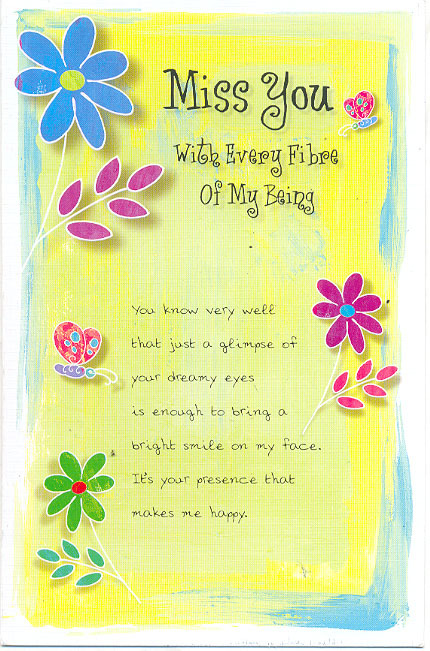 Miss You
With Every Fibre
Of My Being
You know very well
that just a glimpse of
your dreamy eyes
is enough to bring a
bright smile on my face.
It's your presence that
makes me happy.